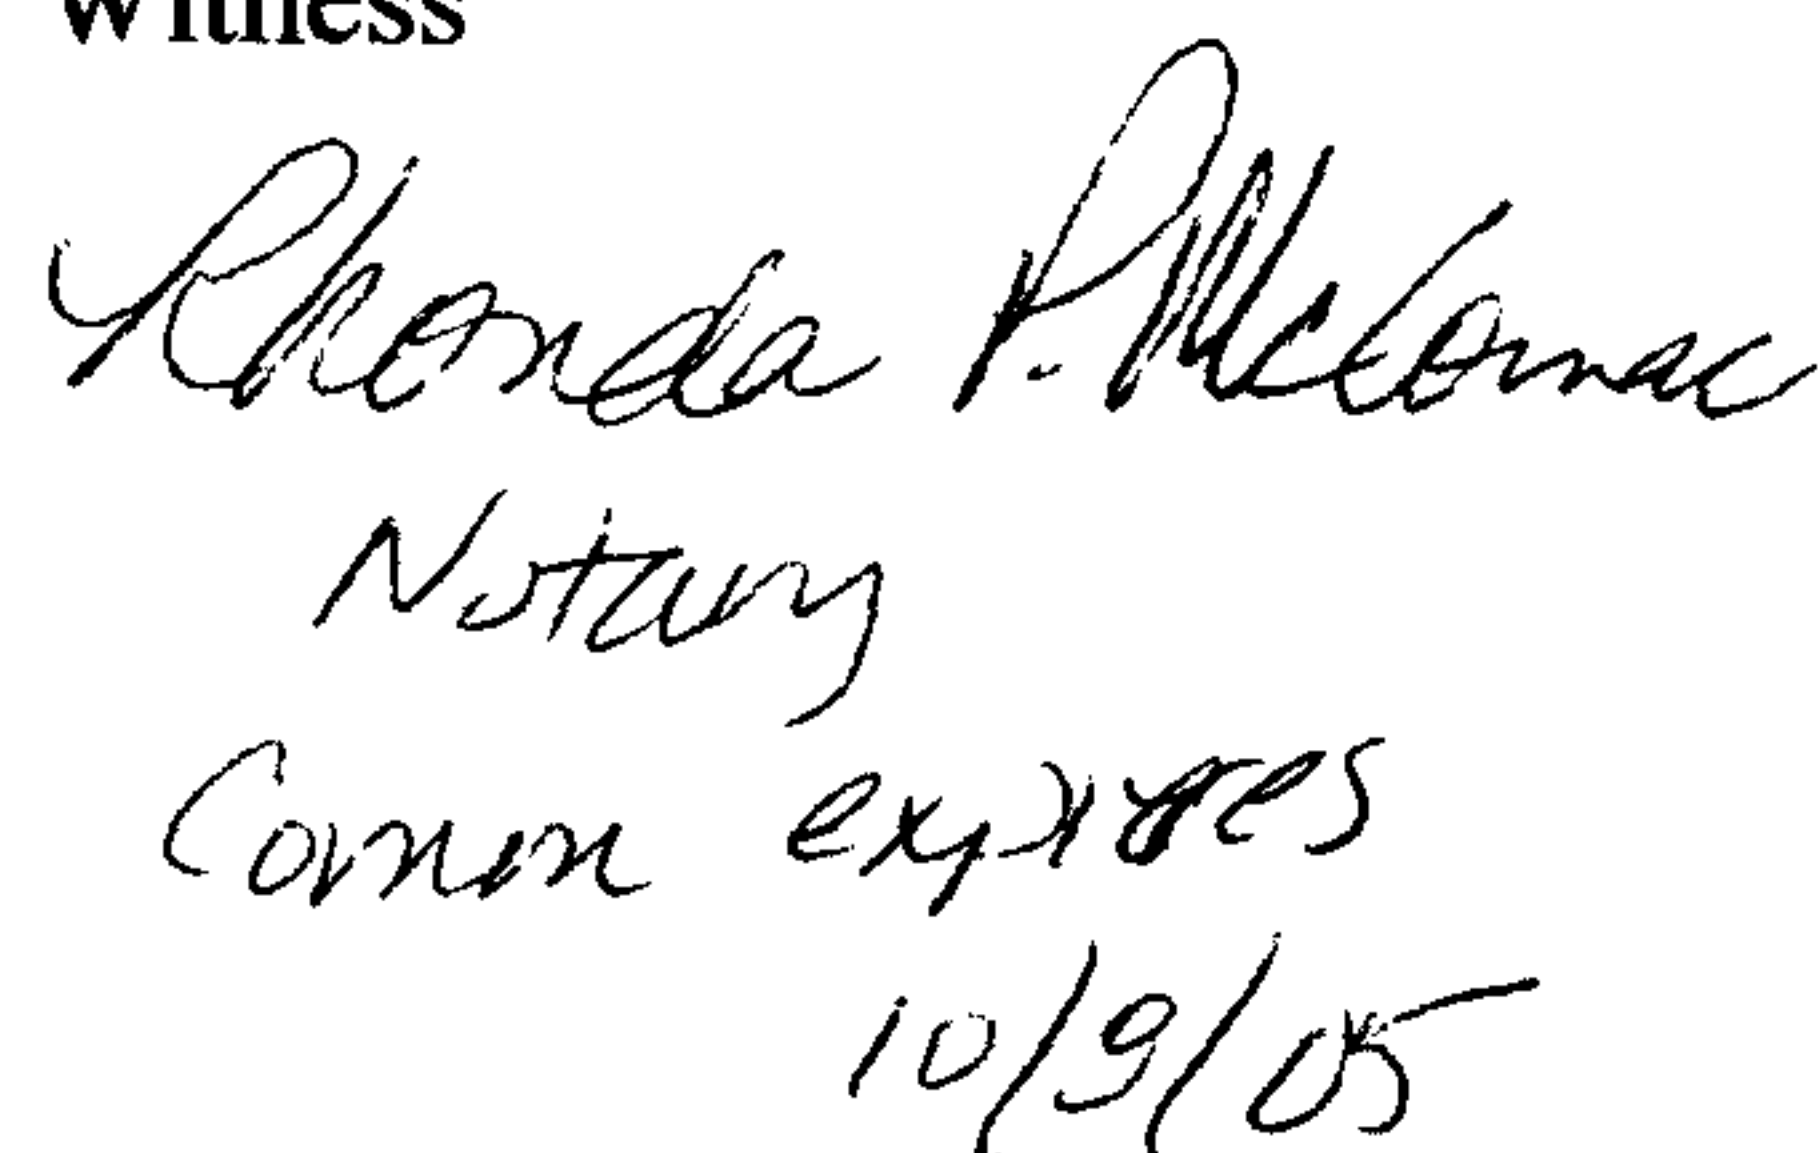 Witness
Rhonda P. McCormac
Notary
Comm expires
10/9/05